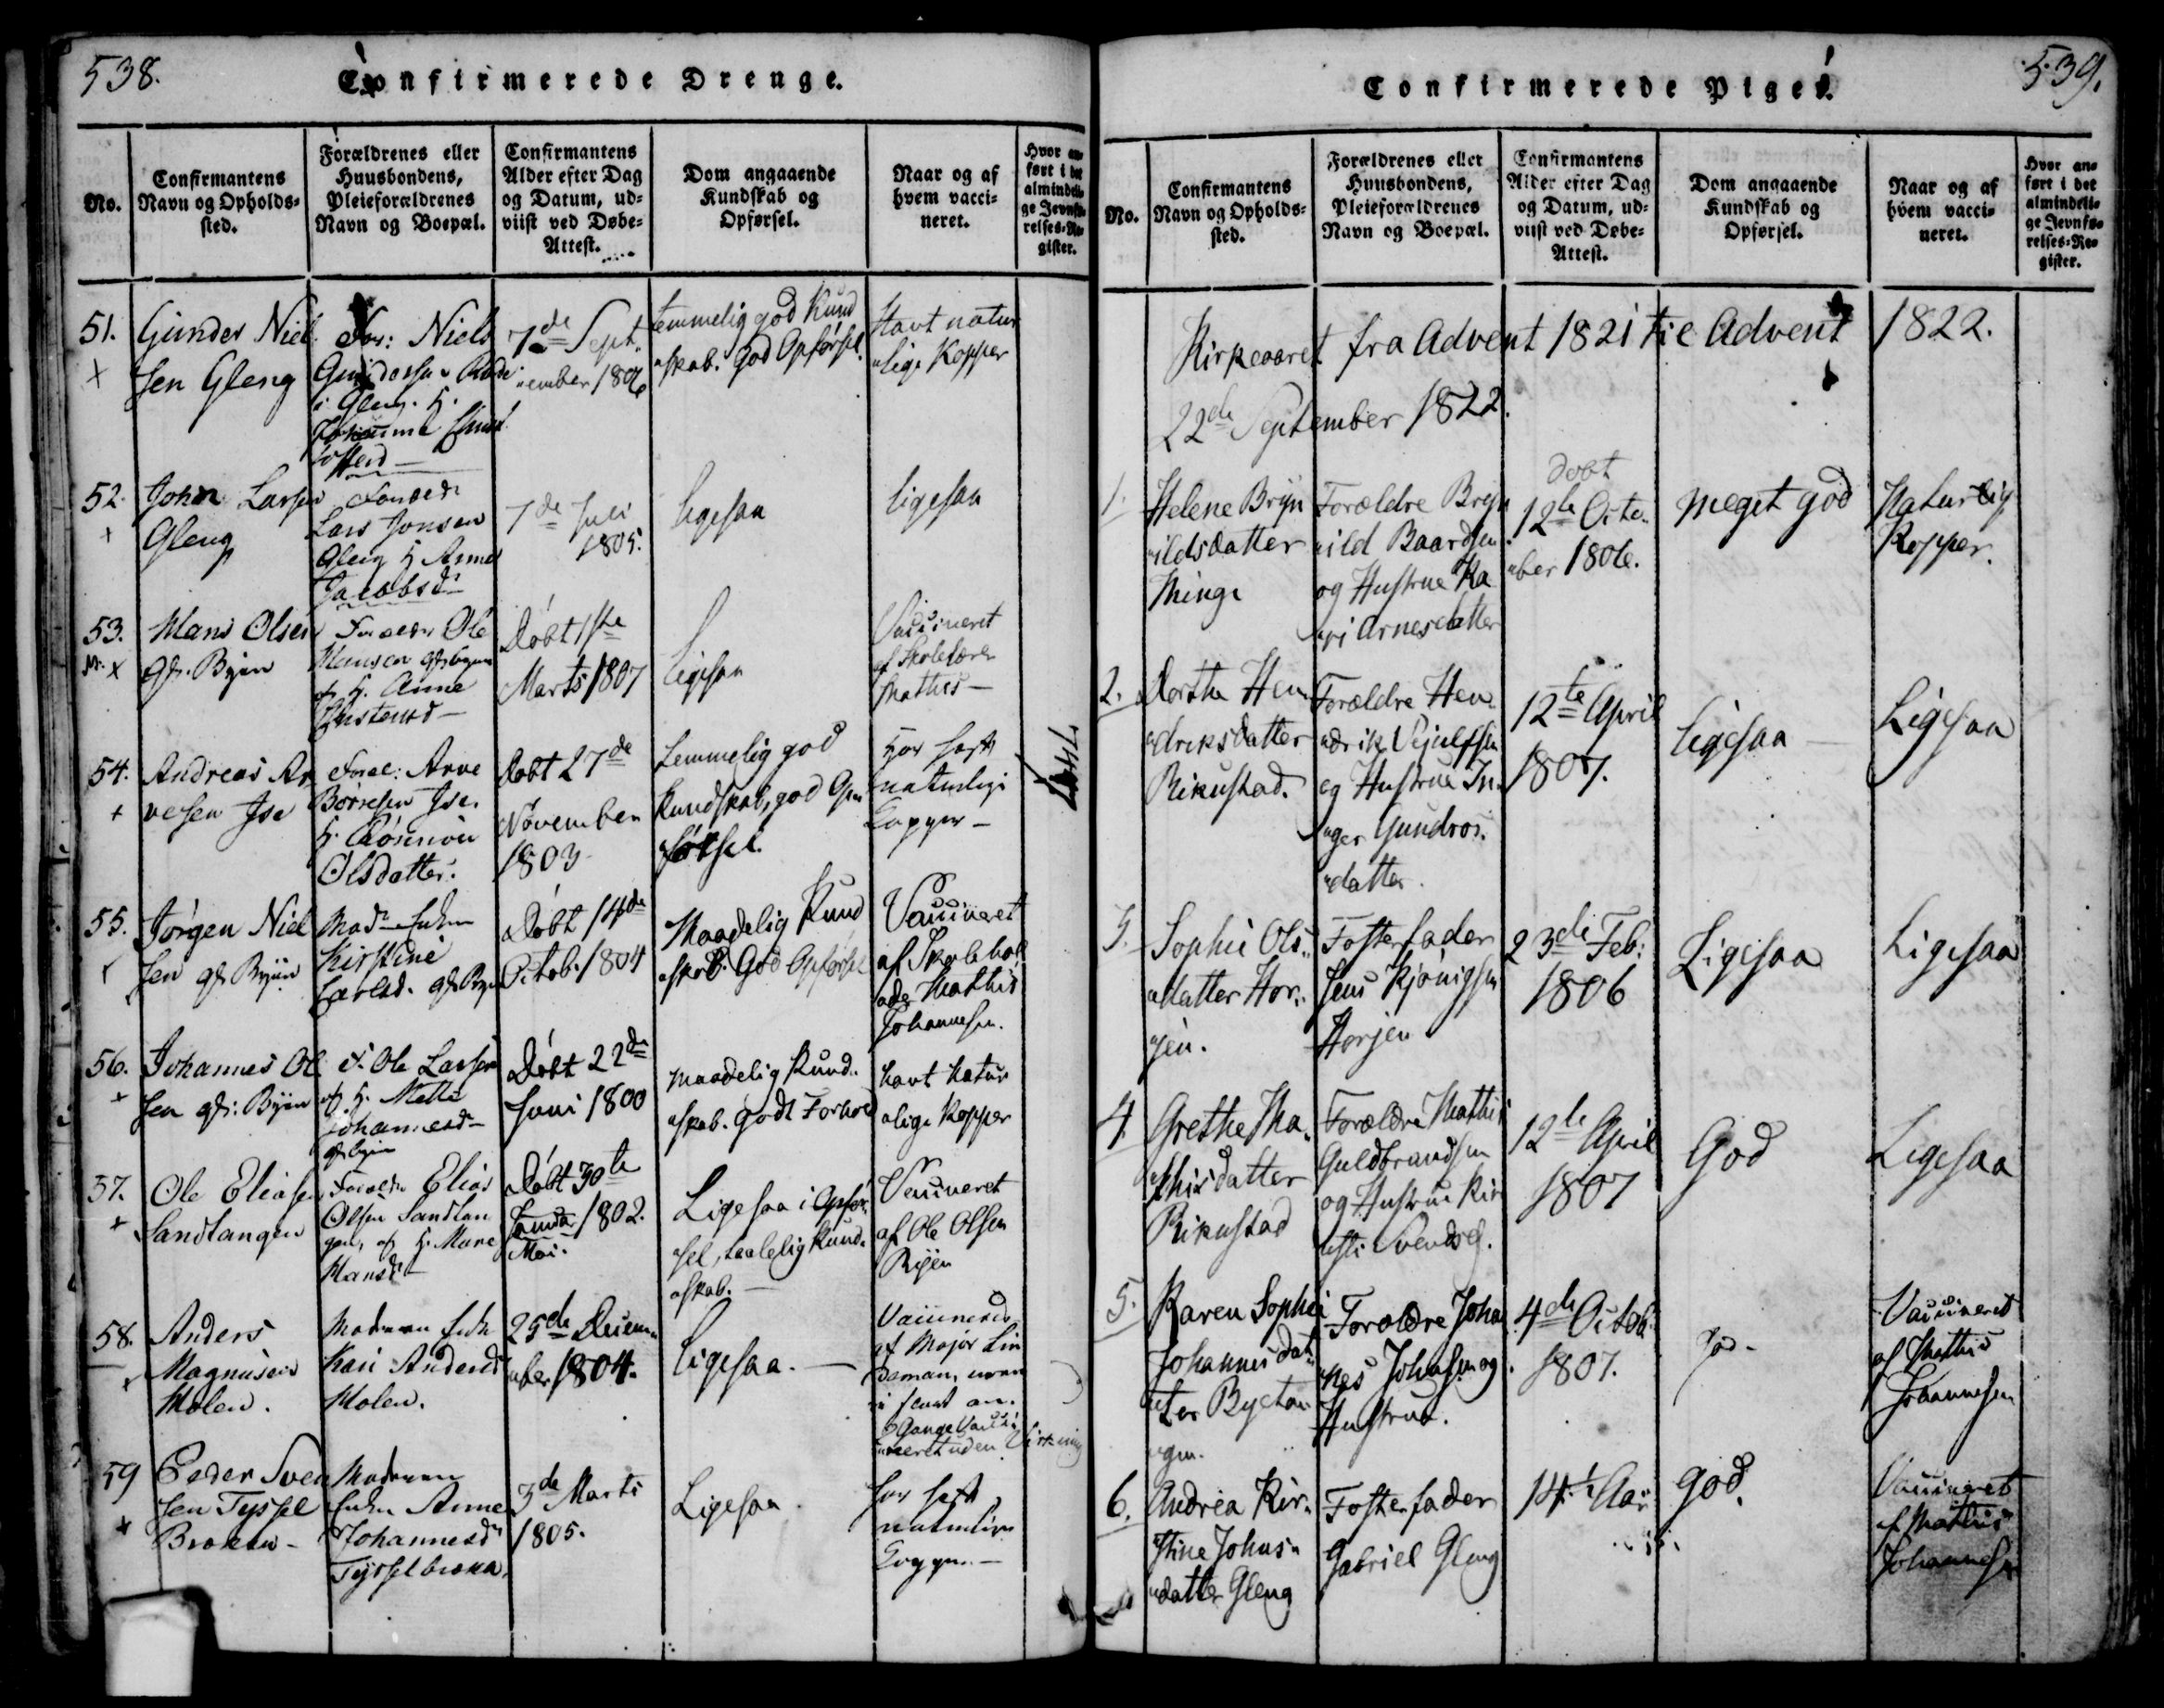 538.
Confirmerede Drenge.
No.
Confirmantens
Navn og Opholds-
sted.
Forældrenes eller
Huusbondens,
Pleieforældrenes
Navn og Boepæl.
Confirmantens
Alder efter Dag
og Datum, ud-
viist ved Døbe-
Attest.
Dom angaaende
Kundskab og
Opførsel.
Naar og af
hvem vacci-
neret.
Hvor an-
ført i det
almindeli-
ge Jevnfø-
relses-Re-
gister.
51.
Gunder Niel
sen Gleng
For: Niels
i Gleng. H.
7de Sept
ember 1806
temmelig god Kund
skab. God Opførsel.
Havt natur
lige Kopper
52.
John Larsen
Gleng
Lars Jonsen
Gleng H Anne
Jacobsd
7de Juli
1805.
ligesaa
ligesaa
53.
Hans Olsen
gfs. Byen
Forældr Ole
Hansen
H. Anne
Døbt 1ste
Marts 1807
ligesaa
Vaccineret
af Skolelærer
Mathis
54.
Andreas Ar
vesen Ise
Foræl: Arve
Børresen Ise
H.
Olsdatter.
Døbt 27de
November
1803
temmelig god
Kundskab, god Op
førsel.
naturlige
Kopper
55.
Jørgen Niel
sen gfs Byen
Mad
Kirstine
Døbt 14de
Octob. 1804
Maadelig Kund
skab. God Opførsel
Vaccineret
af Skolehol
der Mathis
Johannesen.
56.
Johannes Ol
sen gfs: Byen
F. Ole Larsen
H. Mette
Johannesd
Døbt 22de
Juni 1800
maadelig Kund
skab. godt Forhold
havt natur
lige Kopper
57.
Ole Eliasen
Sandtangen
Forældr Elias
Olsen Sandtan
gen, H. Maren
Hansd
Døbt 30te
1802.
Mai.
Ligesaa i Opfør
sel, taalelig Kund
skab.
Vaccineret
af Ole Olsen
Byen
58.
Anders
Magnusen
Holen.
Moderen Enke
Kari Andersd
Holen.
29de Decem
ber 1804.
Ligesaa.
af Major Lin
3 Gange Vacci
neret uden Virkning
59
Peder Sven
sen Tyssel
Broken
Moderen
Enken Anne
Johannesd
3de Marts
1805.
Ligesaa
har haft
naturlige
Kopper
539.
Confirmerede Piger.
No.
Confirmantens
Navn og Opholds-
sted.
Forældrenes eller
Huusbondens,
Pleieforældrenes
Navn og Boepæl.
Confirmantens
Alder efter Dag
og Datum, ud-
viist ved Døbe-
Attest.
Dom angaaende
Kundskab og
Opførsel.
Naar og af
hvem vacci-
neret.
Hvor an-
ført i det
almindeli-
ge Jevnfø-
relses-Re-
gister.
Kirkeaaret fra Advent 1821 til Advent 1822.
22de September 1822.
1.
Helene Bryn
ildsdatter
Thinge
Forældre Bryn
ild Baardsen
og Hustrue Ka
ri Arnesdatter
døbt
12te Octo
ber 1806.
meget god
Naturlig
Kopper.
2.
Dorthe Hen
driksdatter
Rikustad.
Forældre Hen
drik Vejulfsen
og Hustrue In
ger Gundros
datter.
12te April
1807.
ligesaa
Ligesaa
3.
Sophie Ols
datter Hor
jen.
Fosterfader
Jens Kjønigsen
Horjen
23de Feb:
1806
Ligesaa
Ligesaa
4.
Grethe Ma
thisdatter
Rikustad
Forældre Mathis
Guldbrandsen
og Hustrue Kir
sti Svendsd.
12te April
1807
God
Ligesaa
5.
Karen Sophie
Johannesdat
ter Bytan
gen.
Forældre Johan
nes Johnsen og
Hustrue.
4de Octob.
1807.
God
Vaccineret
af Mathis
Johannesen
6.
Andrea Kir
stine Johns
datter Gleng
Fosterfader
Gabriel Gleng
14½ Aar
god.
Vaccineret
af Mathis
Johannesen